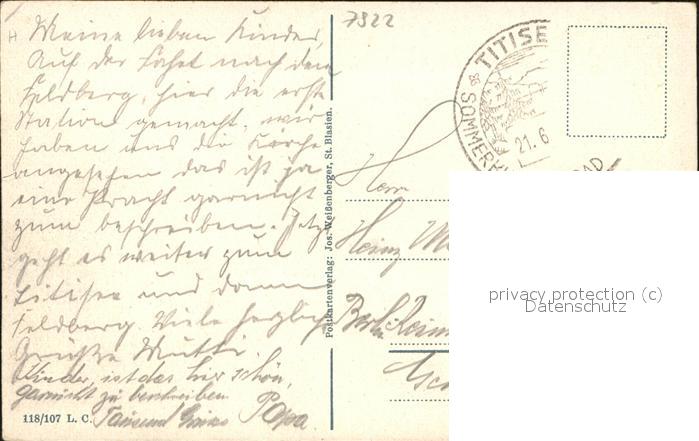 7822
Meine lieben Kinder,
Auf der Fahrt nach dem
Feldberg, hier die erste
Station gemacht, wir
haben uns die Kirche
angesehen das ist ja
eine Pracht garnicht
zum beschreiben. Jetzt
geht es weiter zum
Titisee und dann
Feldberg. Viele herzliche
Grüße Mutti.
Kinder, ist das hier schön,
garnicht zu beschreiben
Tausend Papa.
118/107 L. C.
Postkartenverlag: Jos. Weißenberger, St. Blasien.
TITISE
SOMMER
21. 6
AD
Herrn
Heinz
Berlin
privacy protection (c)
Datenschutz